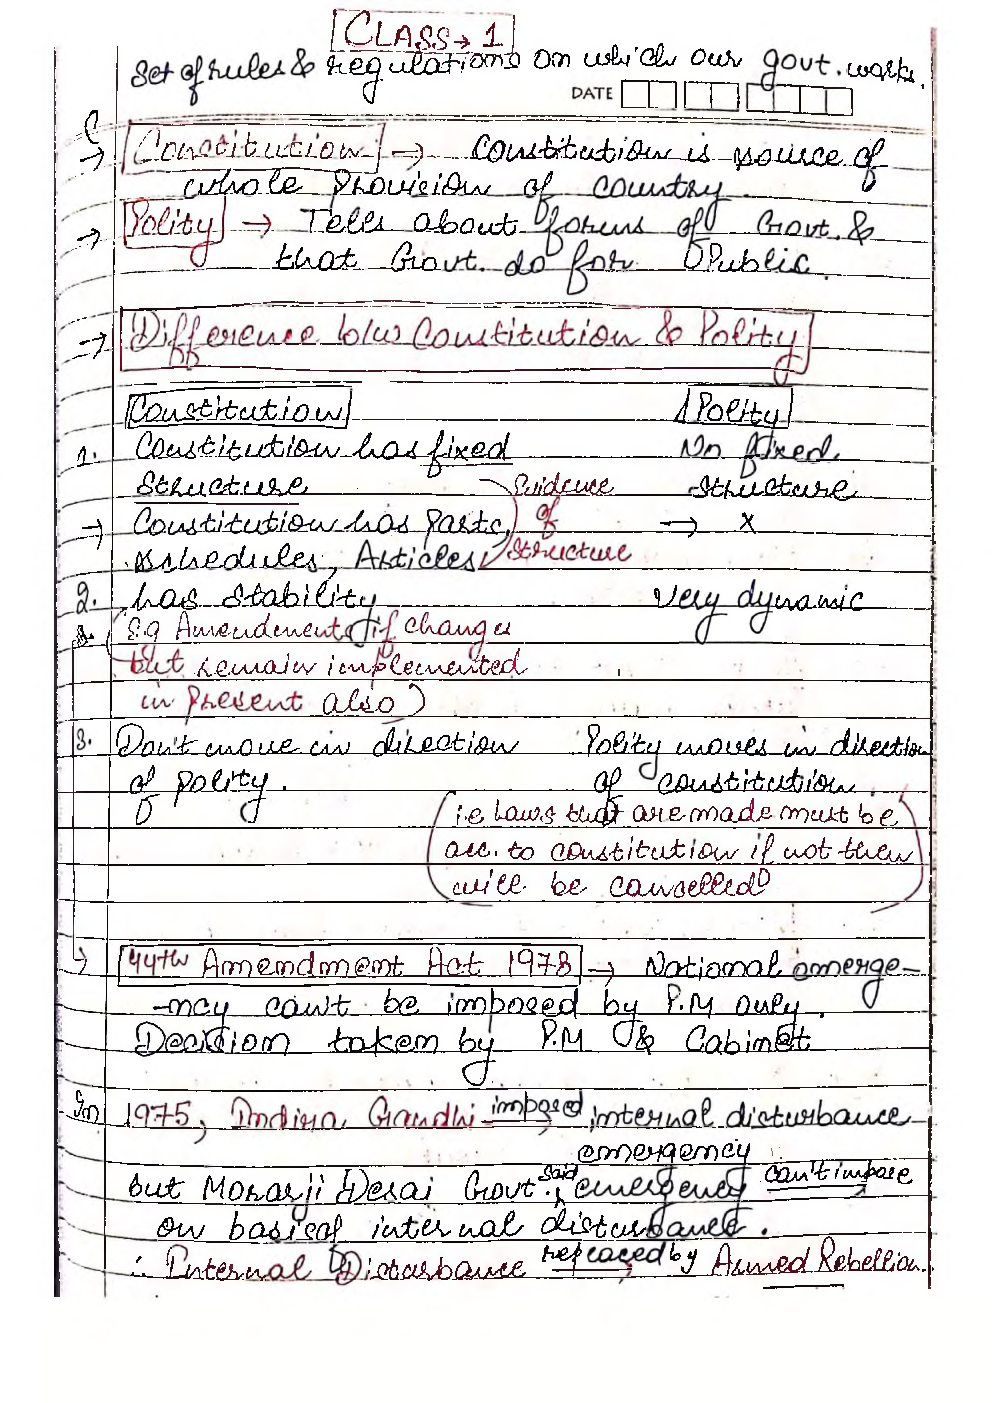 CLASS → 1
Set of rules & regulations on which our govt. works.
DATE
→ Constitution → Constitution is source of
whole provision of country
→ Polity → Tells about forms of Govt. &
that Govt. do for Public.
→ Difference b/w Constitution & Polity
Constitution Polity
1. Constitution has fixed No fixed
structure Evidence structure
→ Constitution has Parts, of → x
schedules, Articles structure
2. has stability very dynamic
(e.g Amendments if changes
but remain implemented
in present also)
3. Don't move in direction Polity moves in direction
of polity. of constitution.
(i.e laws that are made must be
acc. to constitution if not then
will be cancelled)
↳ 44th Amendment Act 1978 → National emerge-
-ncy can't be imposed by P.M only.
Decision taken by P.M & Cabinet
In 1975, Indira Gandhi imposed internal disturbance
emergency
but Morarji Desai Govt. said, emergency can't impose
on basis of internal disturbance.
∴ Internal Disturbance replaced by Armed Rebellion.